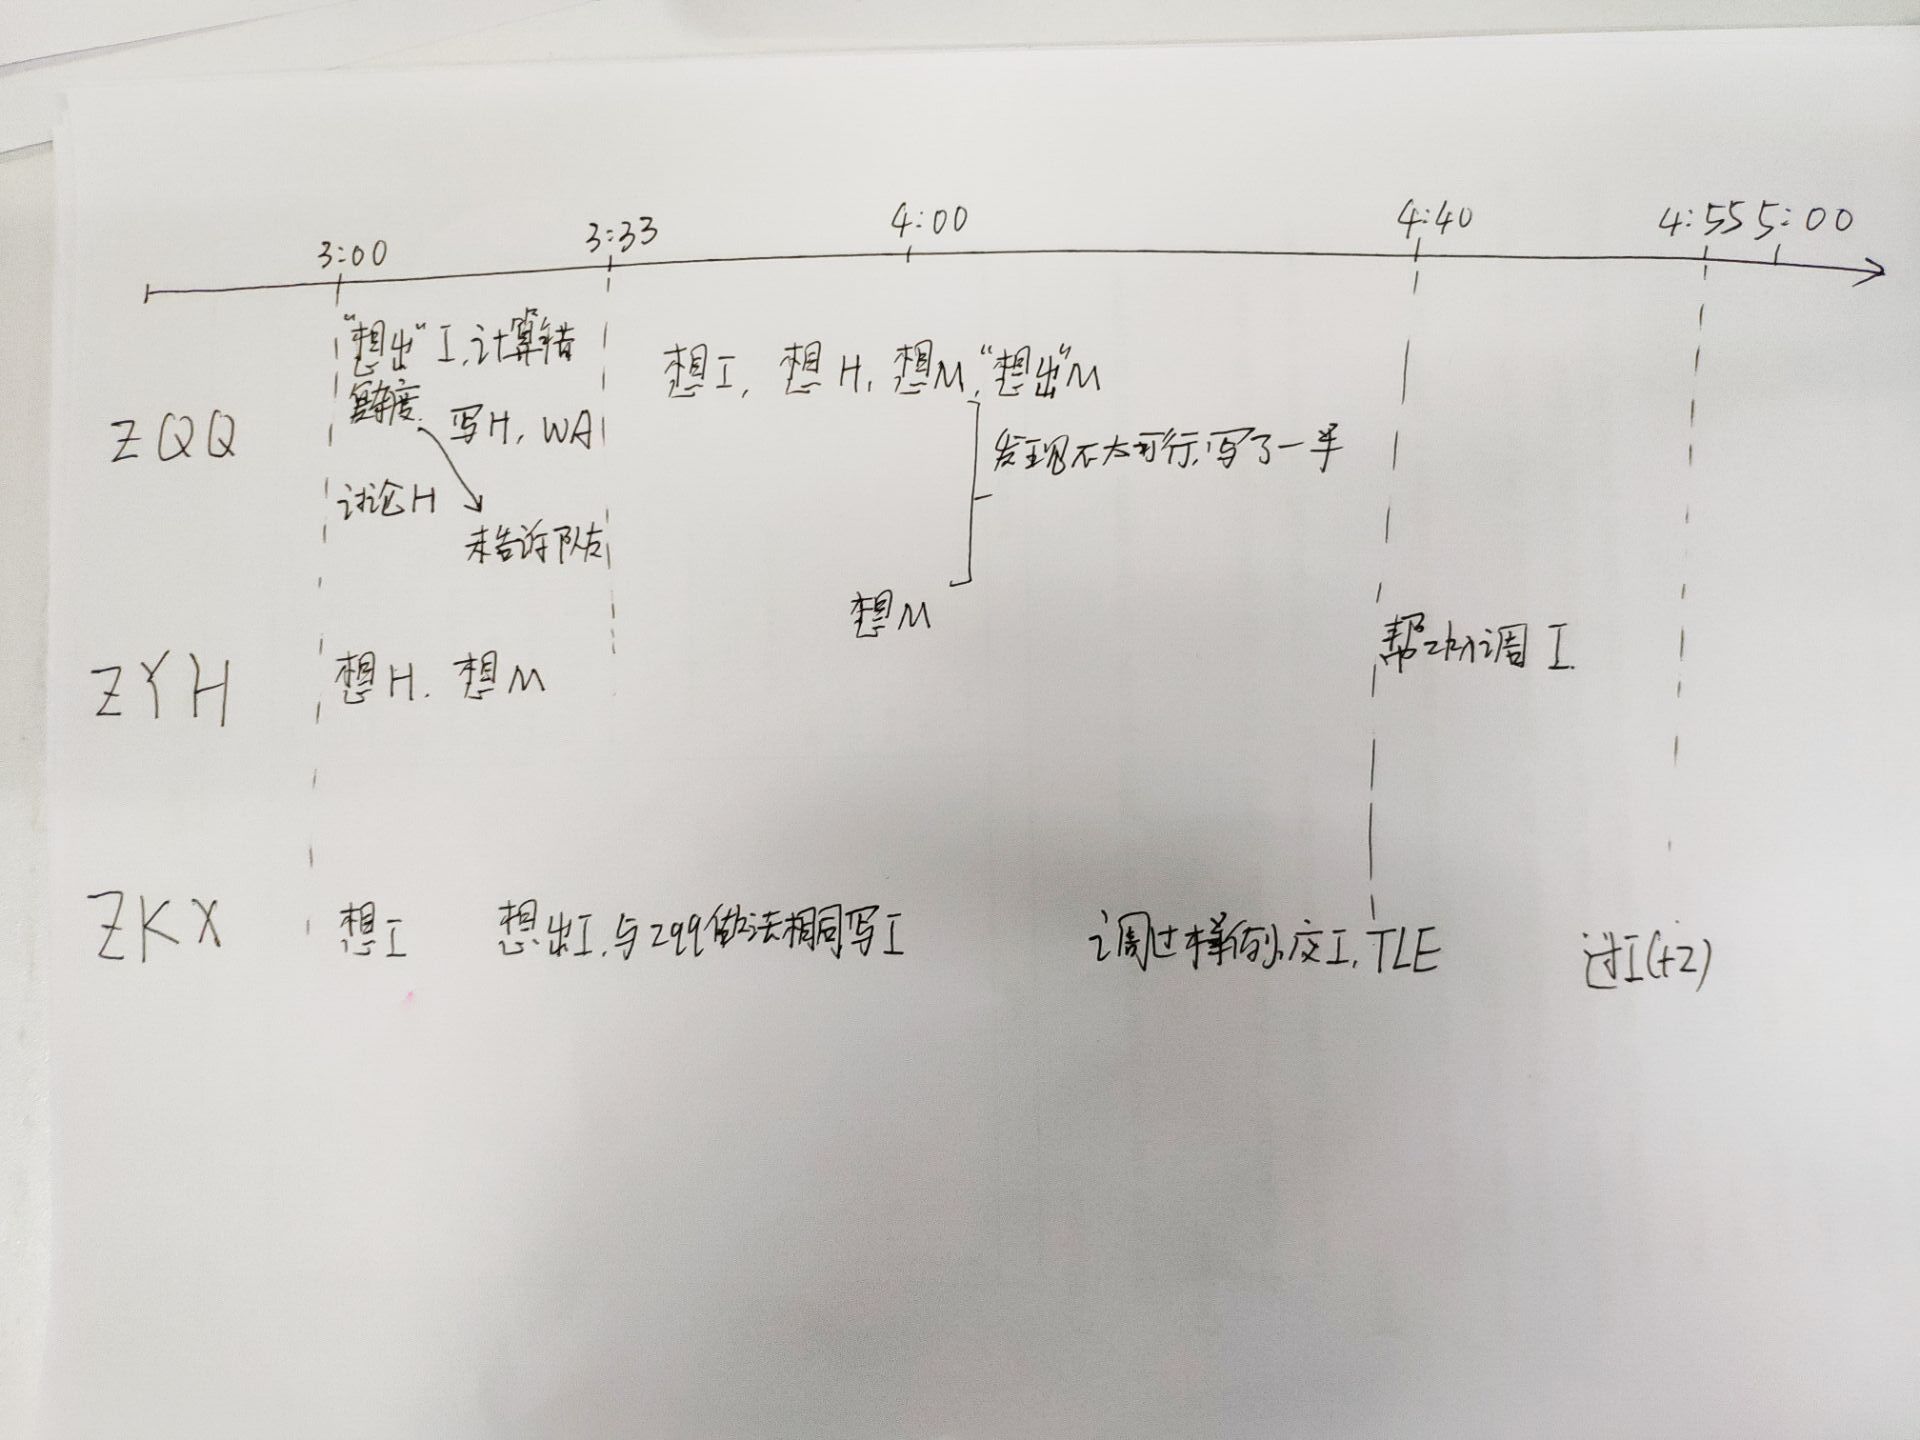 3:00 3:33 4:00 4:40 4:55 5:00
"想出"I,计算错
复杂度.
ZQQ
写H, WA
讨论H
未告诉队友
想I, 想H, 想M, "想出"M
发现不太可行,写了一半
想M
ZYH
想H. 想M
帮忙调I.
ZKX
想I
想出I,与zqq做法相同写I
调过样例,交I, TLE
过I(+2)